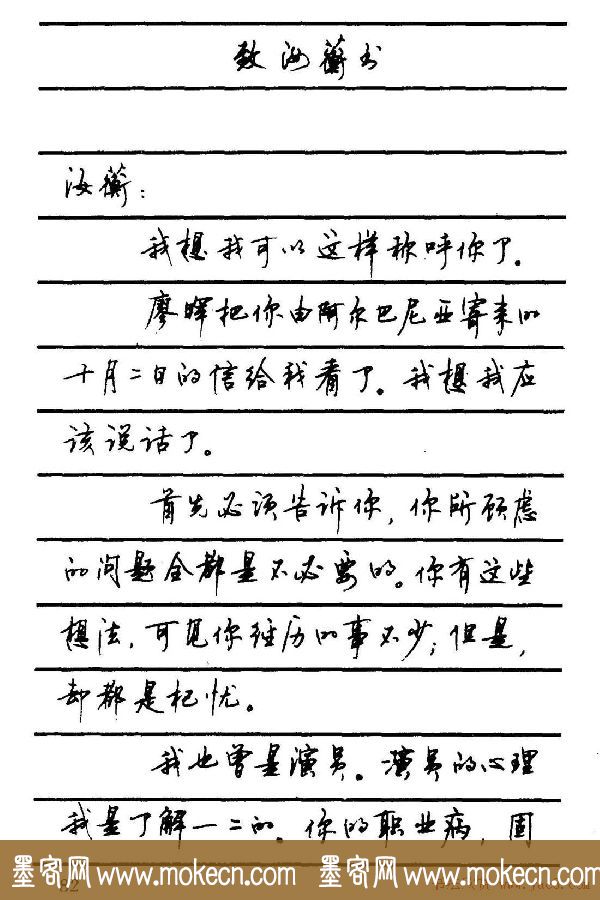 致汝蘅书
汝蘅：
我想我可以这样称呼你了。
廖晖把你由阿尔巴尼亚寄来的
十月二日的信给我看了。我想我应
该说话了。
首先必须告诉你，你所顾虑
的问题全都是不必要的。你有这些
想法，可见你经历的事不少；但是，
却都是杞忧。
我也曾是演员。演员的心理
我是了解一二的。你的职业病，固
墨客网 www.mokecn.com 墨客网 www.mokecn.com
82